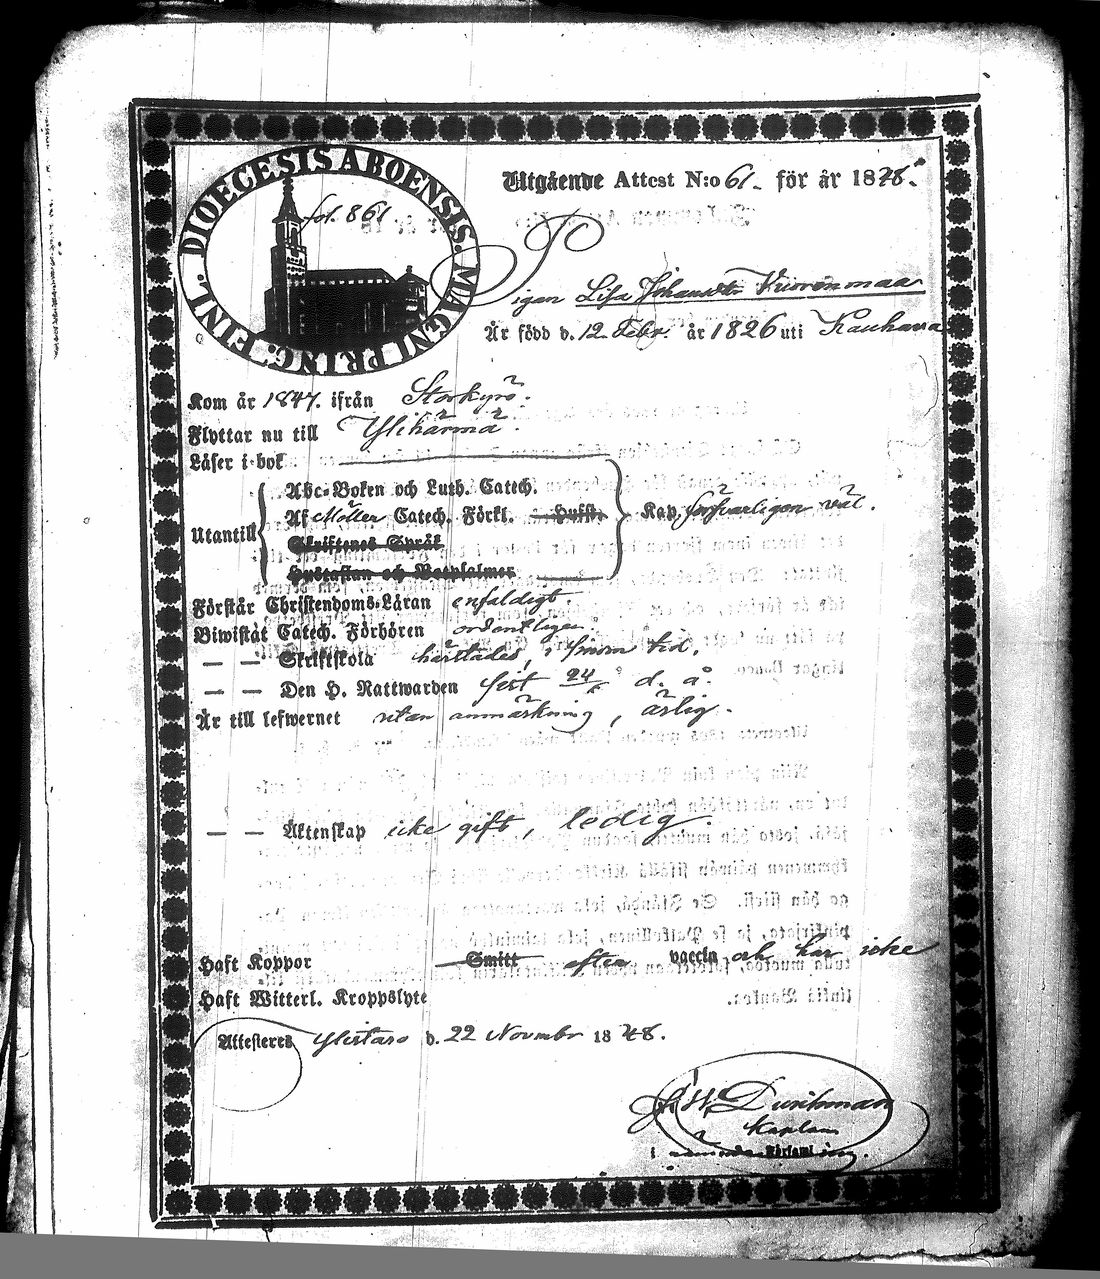 DIOECESIS ABOENSIS. MAGNI PRINC. FINL.
fol. 861
Utgående Attest N:o 61. för år 1848.
Pigan Lisa Johansdr Vuorenmaa
Är född d. 12 Febr. år 1826 uti Kauhava
Kom år 1847. ifrån Storkyrö.
Flyttar nu till Ylihärmä.
Läser i bok
Utantill
Abc-Boken och Luth. Catech.
Af Möller Catech. Förkl. Hufst.
Skriftenes Språk
Gustafian och Botpsalmer
Kap. försvarligen väl.
Förstår Christendoms-Läran enfaldigt
Biwistat Catech. Förhören ordentligen.
— — Skriftskola
— — Den H. Nattwarden sist 24 d. å.
Är till lefwernet utan anmärkning, ärlig.
— — Äktenskap icke gift, ledig.
Haft Koppor Smitt efter vaccin och har icke
Haft Witterl. Kroppslyte
Attesteres Ylistaro d. 22 Novembr 1848.
Kaplan
i Församling.